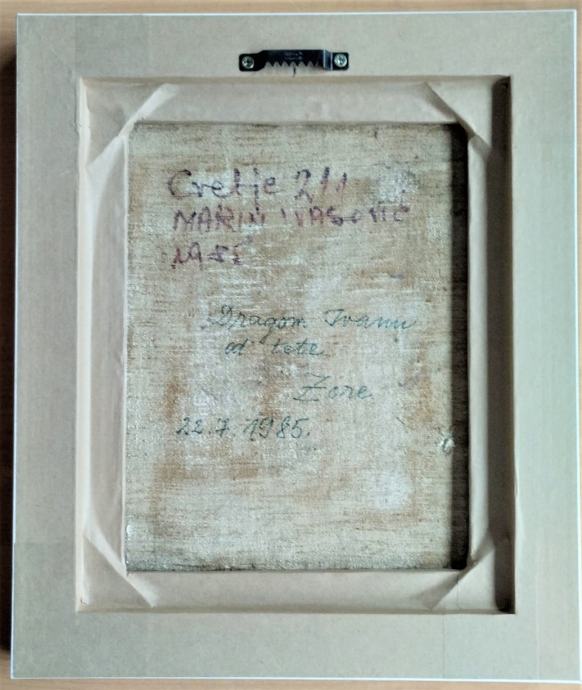 Cvetje 211
MARIN
1985
Dragom Ivanu
od tete
Zore.
22.7.1985.